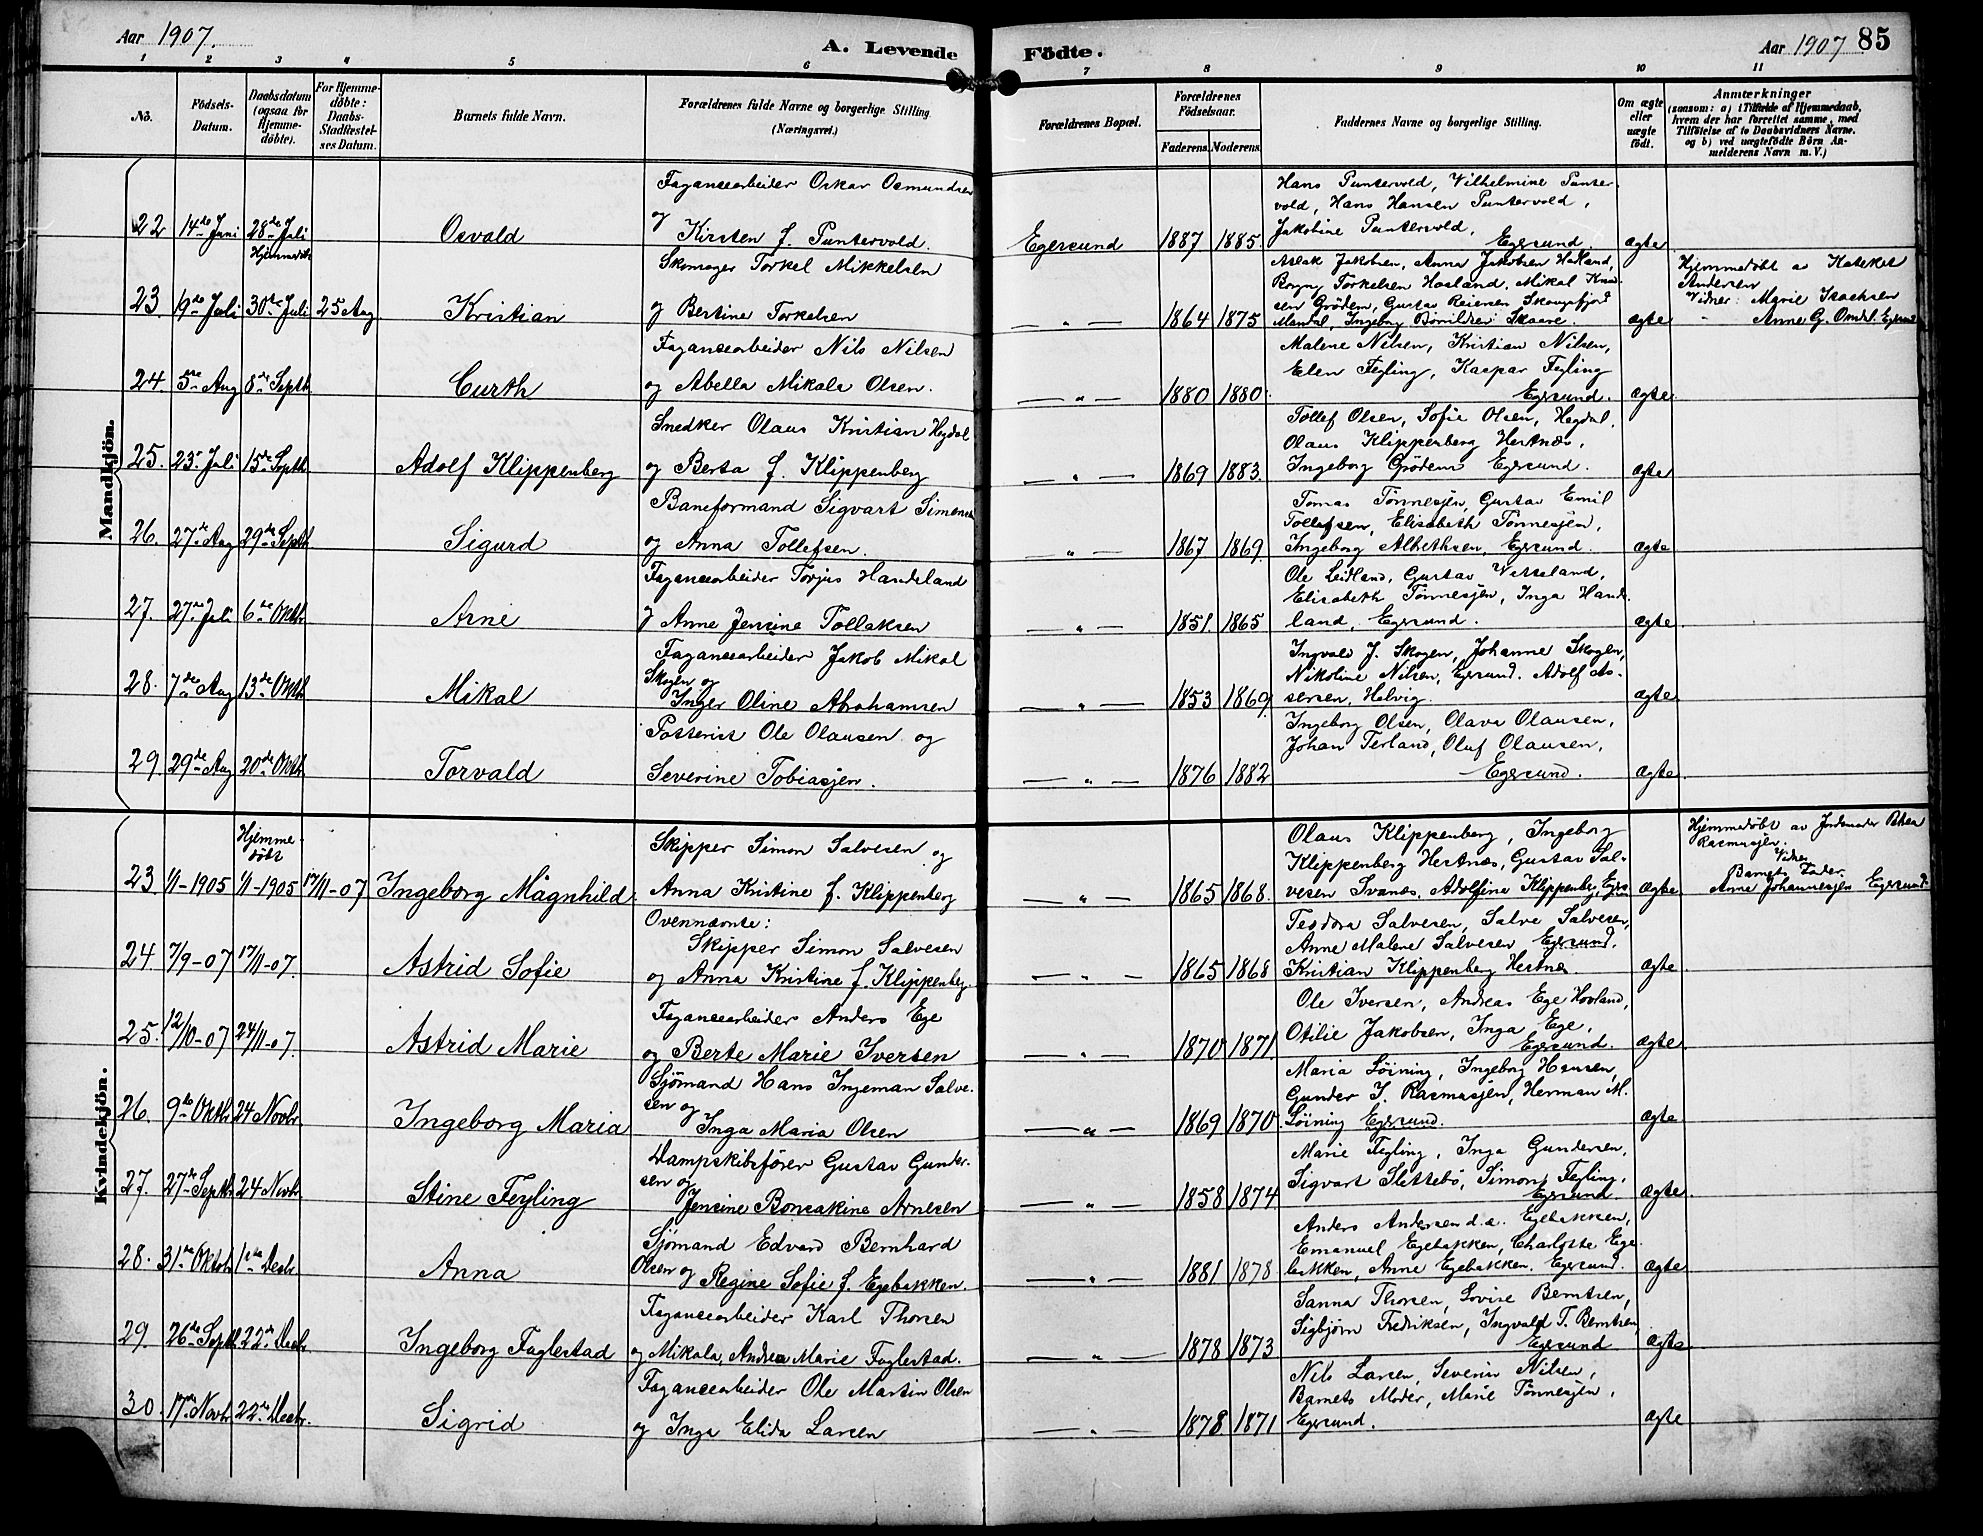 Aar 1907.
A. Levende Födte.
Aar 1907 85
1 2 3 4 5 6 7 8 9 10 11
No.
Födsels-
Datum.
Daabsdatum
(ogsaa for
Hjemme-
döbte).
For Hjemme-
döbte:
Daabs-
Stadfæstel-
ses Datum.
Barnets fulde Navn.
Forældrenes fulde Navne og borgerlige Stilling
(Næringsvei.)
Forældrenes Bopæl.
Forældrenes
Födselsaar.
Faderens. Moderens.
Faddernes Navne og borgerlige Stilling.
Om ægte
eller
uægte
födt.
Anmærkninger
(saasom: a) i Tilfælde af Hjemmedaab,
hvem der har forrettet samme, med
Tilföielse af to Daabsvidners Navne.
og b) ved uægtefödte Börn An-
melderens Navn m. V.)
Mandkjön.
22 14de Juni 28de Juli
Hjemmedøbt
Osvald
Fayancearbeider Oskar Osmundsen
og
Kirsten f. Puntervold.
Egersund 1887 1885
Hans Puntervold, Vilhelmine Punter-
vold, Hans Hansen Puntervold,
Jakobine Puntervold,
Egersund. ægte
23. 19de Juli 30te Juli 25 Aug
Kristian
Skomager Torkel Mikkelsen
og Bertine Torkelsen
— " — 1864 1875
Aslak Jakobsen, Anna Jakobsen Havland,
Torkelsen Hasland, Mikal Knud-
sen Grödem, Gustav Reiersen
Mandal, Ingeborg Skaare. ægte
Hjemmedöbt av Kateket
Andersen
Vidner: Marie Isachsen
" Anne G. Omdal. Egersund
24. 5te Aug 8de Septb
Curth
Fayancearbeider Nils Nilsen
og Abella Mikale Olsen.
— " — 1880 1880.
Malene Nilsen, Kristian Nilsen,
Elen Feyling, Kaspar Feyling
Egersund. ægte
25. 23de Juli 15de Septb
Adolf Klippenberg
Snedker Olaus Kristian Hegdal
og Berta f. Klippenberg
— " — 1869 1883.
Tollef Olsen, Sofie Olsen, Hegdal,
Olaus Klippenberg Hestnæs,
Ingeborg Grödem Egersund. ægte
26. 27de Aug 29de Septb
Sigurd
Baneformand Sigvart Simonsen
og Anna Tollefsen.
— " — 1867 1869.
Tomas Tønnesjen, Gustav Emil
Tollefsen, Elisabeth Tønnesjen,
Ingeborg Albethsen, Egersund. ægte
27. 27de Juli 6te Oktb
Arne
Fayancearbeider Torjus Handeland
og Anne Jensine Tollaksen
— " — 1851. 1865
Ole Leidland, Gustav Vetteland,
Elisabeth Tønnesjen, Inga Hande-
land, Egersund. ægte
28. 7de Aug 13de Oktb
Mikal
Fayancearbeider Jakob Mikal
Skogen og
Inger Oline Abrahamsen
— " — 1853 1869.
Ingvald J. Skogen, Johanne Skogen,
Nikoline Nilsen, Egersund. Adolf As-
sersen, Helvig. ægte
29 29de Aug 20de Oktb
Torvald
Posterist Ole Olausen og
Severine Tobiasjen.
— " — 1876 1882
Ingeborg Olsen, Olava Olausen,
Johan Terland, Oluf Olausen,
Egersund. ægte
Kvindekjön.
Hjemme-
döbt
23 1/1-1905 1/1-1905 17/11-07
Ingeborg Magnhild.
Skipper Simon Salvesen og
Anna Kristine f. Klippenberg
— " — 1865 1868.
Olaus Klippenberg, Ingeborg
Klippenberg Hestnæs, Gustav Sal-
vesen Svanæs, Adolfine Klippenberg, Egers. ægte
Hjemmedöbt av Jordemoder
Rasmusjen.
Vidner
Barnets Fader
Anne Johannesjen Egersund
24 7/9-07 17/11-07.
Astrid Sofie
Ovennævnte:
Skipper Simon Salvesen
og Anna Kristine f. Klippenberg.
— " — 1865 1868
Teodora Salvesen, Salve Salvesen,
Anne Malene Salvesen Egersund.
Kristian Klippenberg Hestnæs ægte
25. 12/10-07 24/11-07.
Astrid Marie
Fayancearbeider Anders Ege
og Berte Marie Iversen
— " — 1870 1871
Ole Iversen, Andreas Ege Hovland,
Otilie Jakobsen, Inga Ege,
Egersund. ægte
26. 9de Oktb 24 Novbr.
Ingeborg Maria
Sjømand Hans Ingeman Salve-
sen og
Inga Maria Olsen
— " — 1869 1870.
Maria Løining, Ingeborg Hansen,
Gunder I. Rasmusjen, Herman M.
Løining Egersund. ægte
27. 27de Septb 24 Novbr
Stine Feyling
Dampskibsfører Gustav Gunder-
sen og
Jensine Bonsakine Arnesen
— " — 1858 1874
Marie Feyling, Inga Gundersen,
Sigvart Slettebö, Simon Feyling,
Egersund ægte
28. 31te Oktobr 1ste Decbr.
Anna
Sjømand Edvard Bernhard
Olsen og Regine Sofie f. Egebakken.
— " — 1881 1878
Anders Andersen d.e. Egebakken,
Emanuel Egebakken, Charlotte Ege-
bakken, Anne Egebakken, Egersund. ægte
29. 26de Septb 22de Decbr
Ingeborg Faglestad
Fayancearbeider Karl Thorsen
og Mikala, Andrea Marie Faglestad.
— " — 1878 1873
Sanna Thorsen, Lovise Berntsen,
Sigbjørn Fredriksen, Ingvald T. Berntsen,
Egersund ægte
30. 17de Novbr 22de Decbr.
Sigrid
Fayancearbeider Ole Martin Olsen
og Inga Elida Larsen
— " — 1878 1871
Nils Larsen, Severin Nilsen,
Barnets Moder, Marie Tønnesjen,
Egersund. ægte